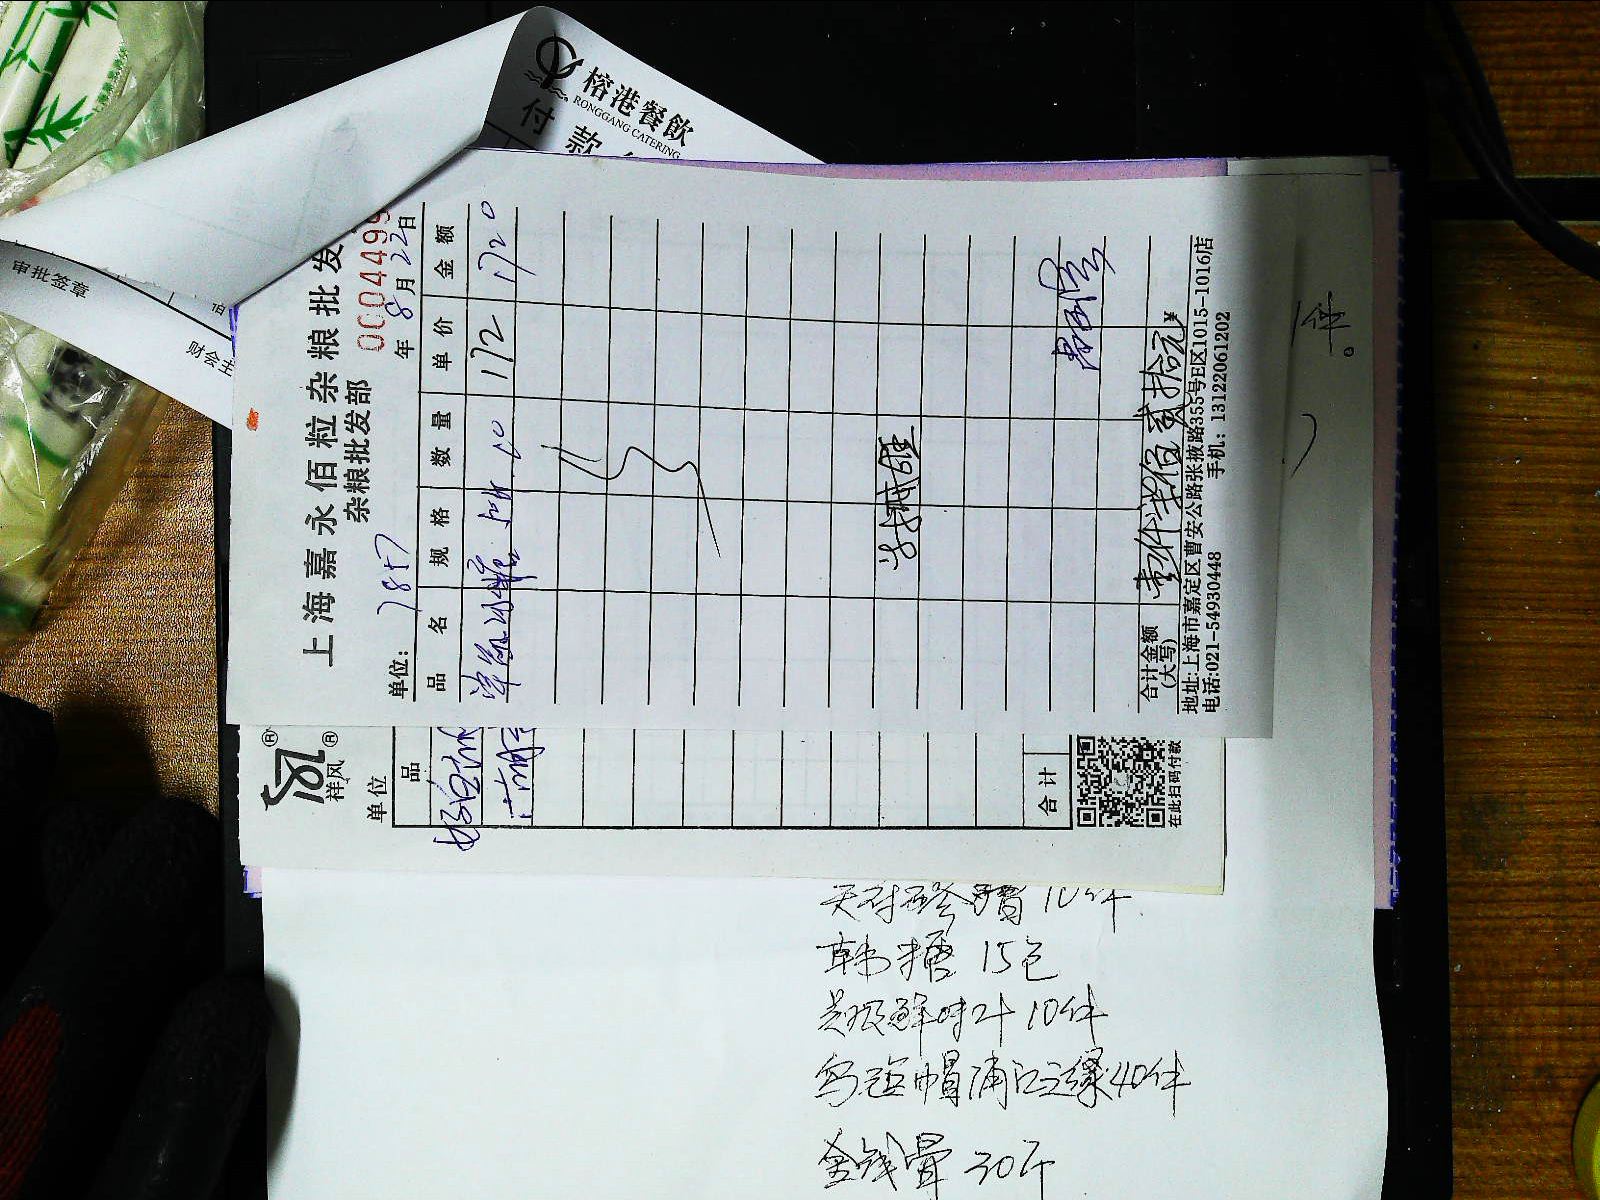 榕港餐飲
RONGGANG CATERING
付款
审批签章
财会主
上海嘉永佰粒杂粮批发
杂粮批发部
0004499
单位: 7857
年 8月22日
品名 规格 数量 单价 金额
10 172 1720
合计金额
(大写) 壹仟柒佰贰拾元 ¥
地址:上海市嘉定区曹安公路张掖路355号E区1015-1016店
电话:021-54930448 手机: 13122061202
祥风
单位
品
合计
在此扫码付款
10件
韩糖 15包
鲜味汁 10件
乌毡帽浦江之缘40件
金钱 30斤